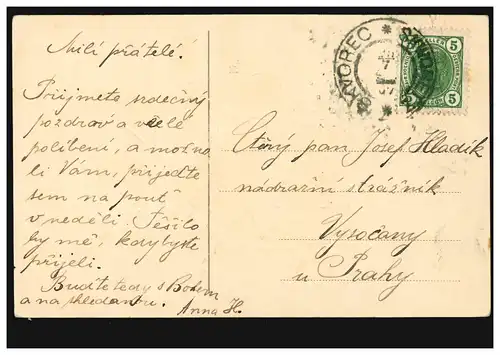 Milí přátelé.
Přijmete srdečný
pozdrav a vřelé
políbení, a možno
li Vám, přijeďte
sem na pouť
v neděli. Těšilo
by mě, kdybyste
přijeli.
Buďte tedy s Bohem
a na shledanou.
Anna H.
ŠKVOREC
5
5
Ctěný pan Josef Hladík
nádražní strážník
Vysočany
u Prahy